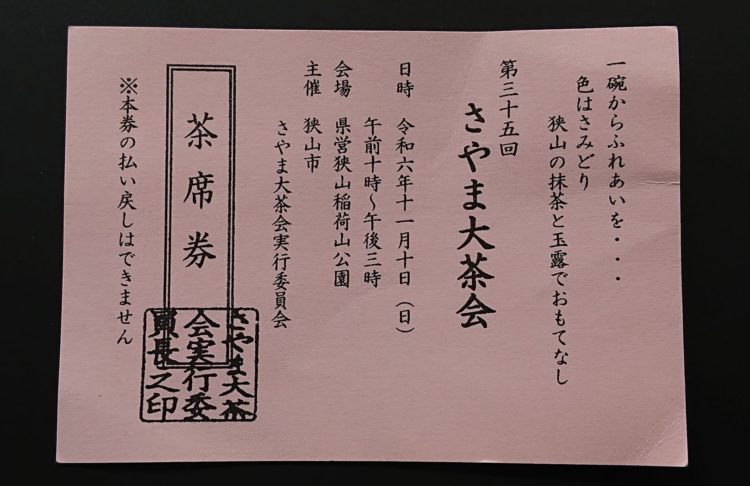 一碗からふれあいを・・・
色はさみどり
狭山の抹茶と玉露でおもてなし
第三十五回
さやま大茶会
日時 令和六年十一月十日(日)
午前十時～午後三時
会場 県営狭山稲荷山公園
主催 狭山市
さやま大茶会実行委員会
茶席券
さやま大茶
会実行委
員長之印
※本券の払い戻しはできません